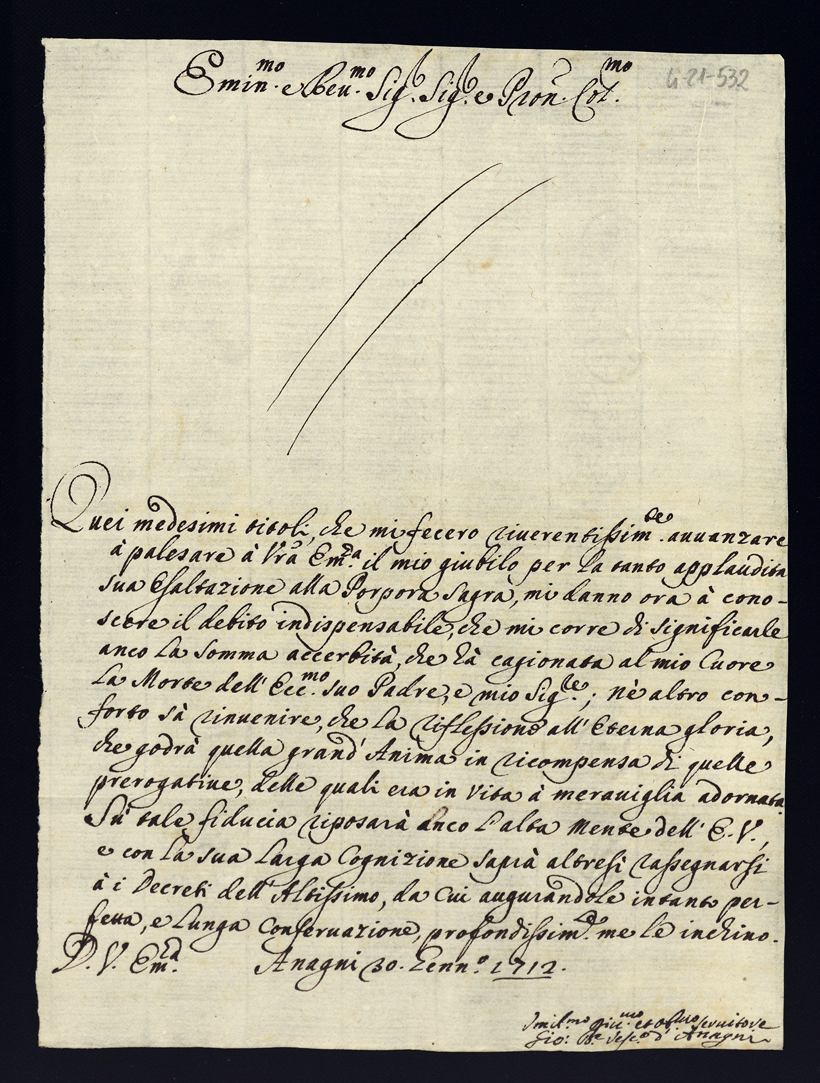 Emin.mo e Reu.mo Sig. Sig. e Pron. Col.mo
4-21-532
Quei medesimi titoli, che mi fecero riuerentissim.te auuanzare
à palesare à Vra Em.za il mio giubilo per la tanto applaudita
sua Esaltazione alla Porpora Sagra, mi danno ora à cono-
scere il debito indispensabile, che mi corre di significarle
anco la somma accerbità, che hà cagionata al mio Cuore
la Morte dell' Ecc.mo suo Padre, e mio Sig.re; nè altro con-
forto sà rinuenire, che la riflessione all' Eterna gloria,
che godrà quella grand' Anima in ricompensa di quelle
prerogatiue, delle quali era in Vita à meraviglia adornata.
Sù tale fiducia riposarà anco l'alta Mente dell' E.V.,
e con la sua larga Cognizione saprà altresì rassegnarsi
à i Decreti dell' Altissimo, da Cui augurandole intanto per-
fetta, e lunga Conseruazione, profondissim.te me le inchino.
D. V. Em.za Anagni 30. Genn.o 1712.
Vmil.mo Diu.mo et Obl.mo seruitore
Gio: B.e Vesc.o d' Anagni